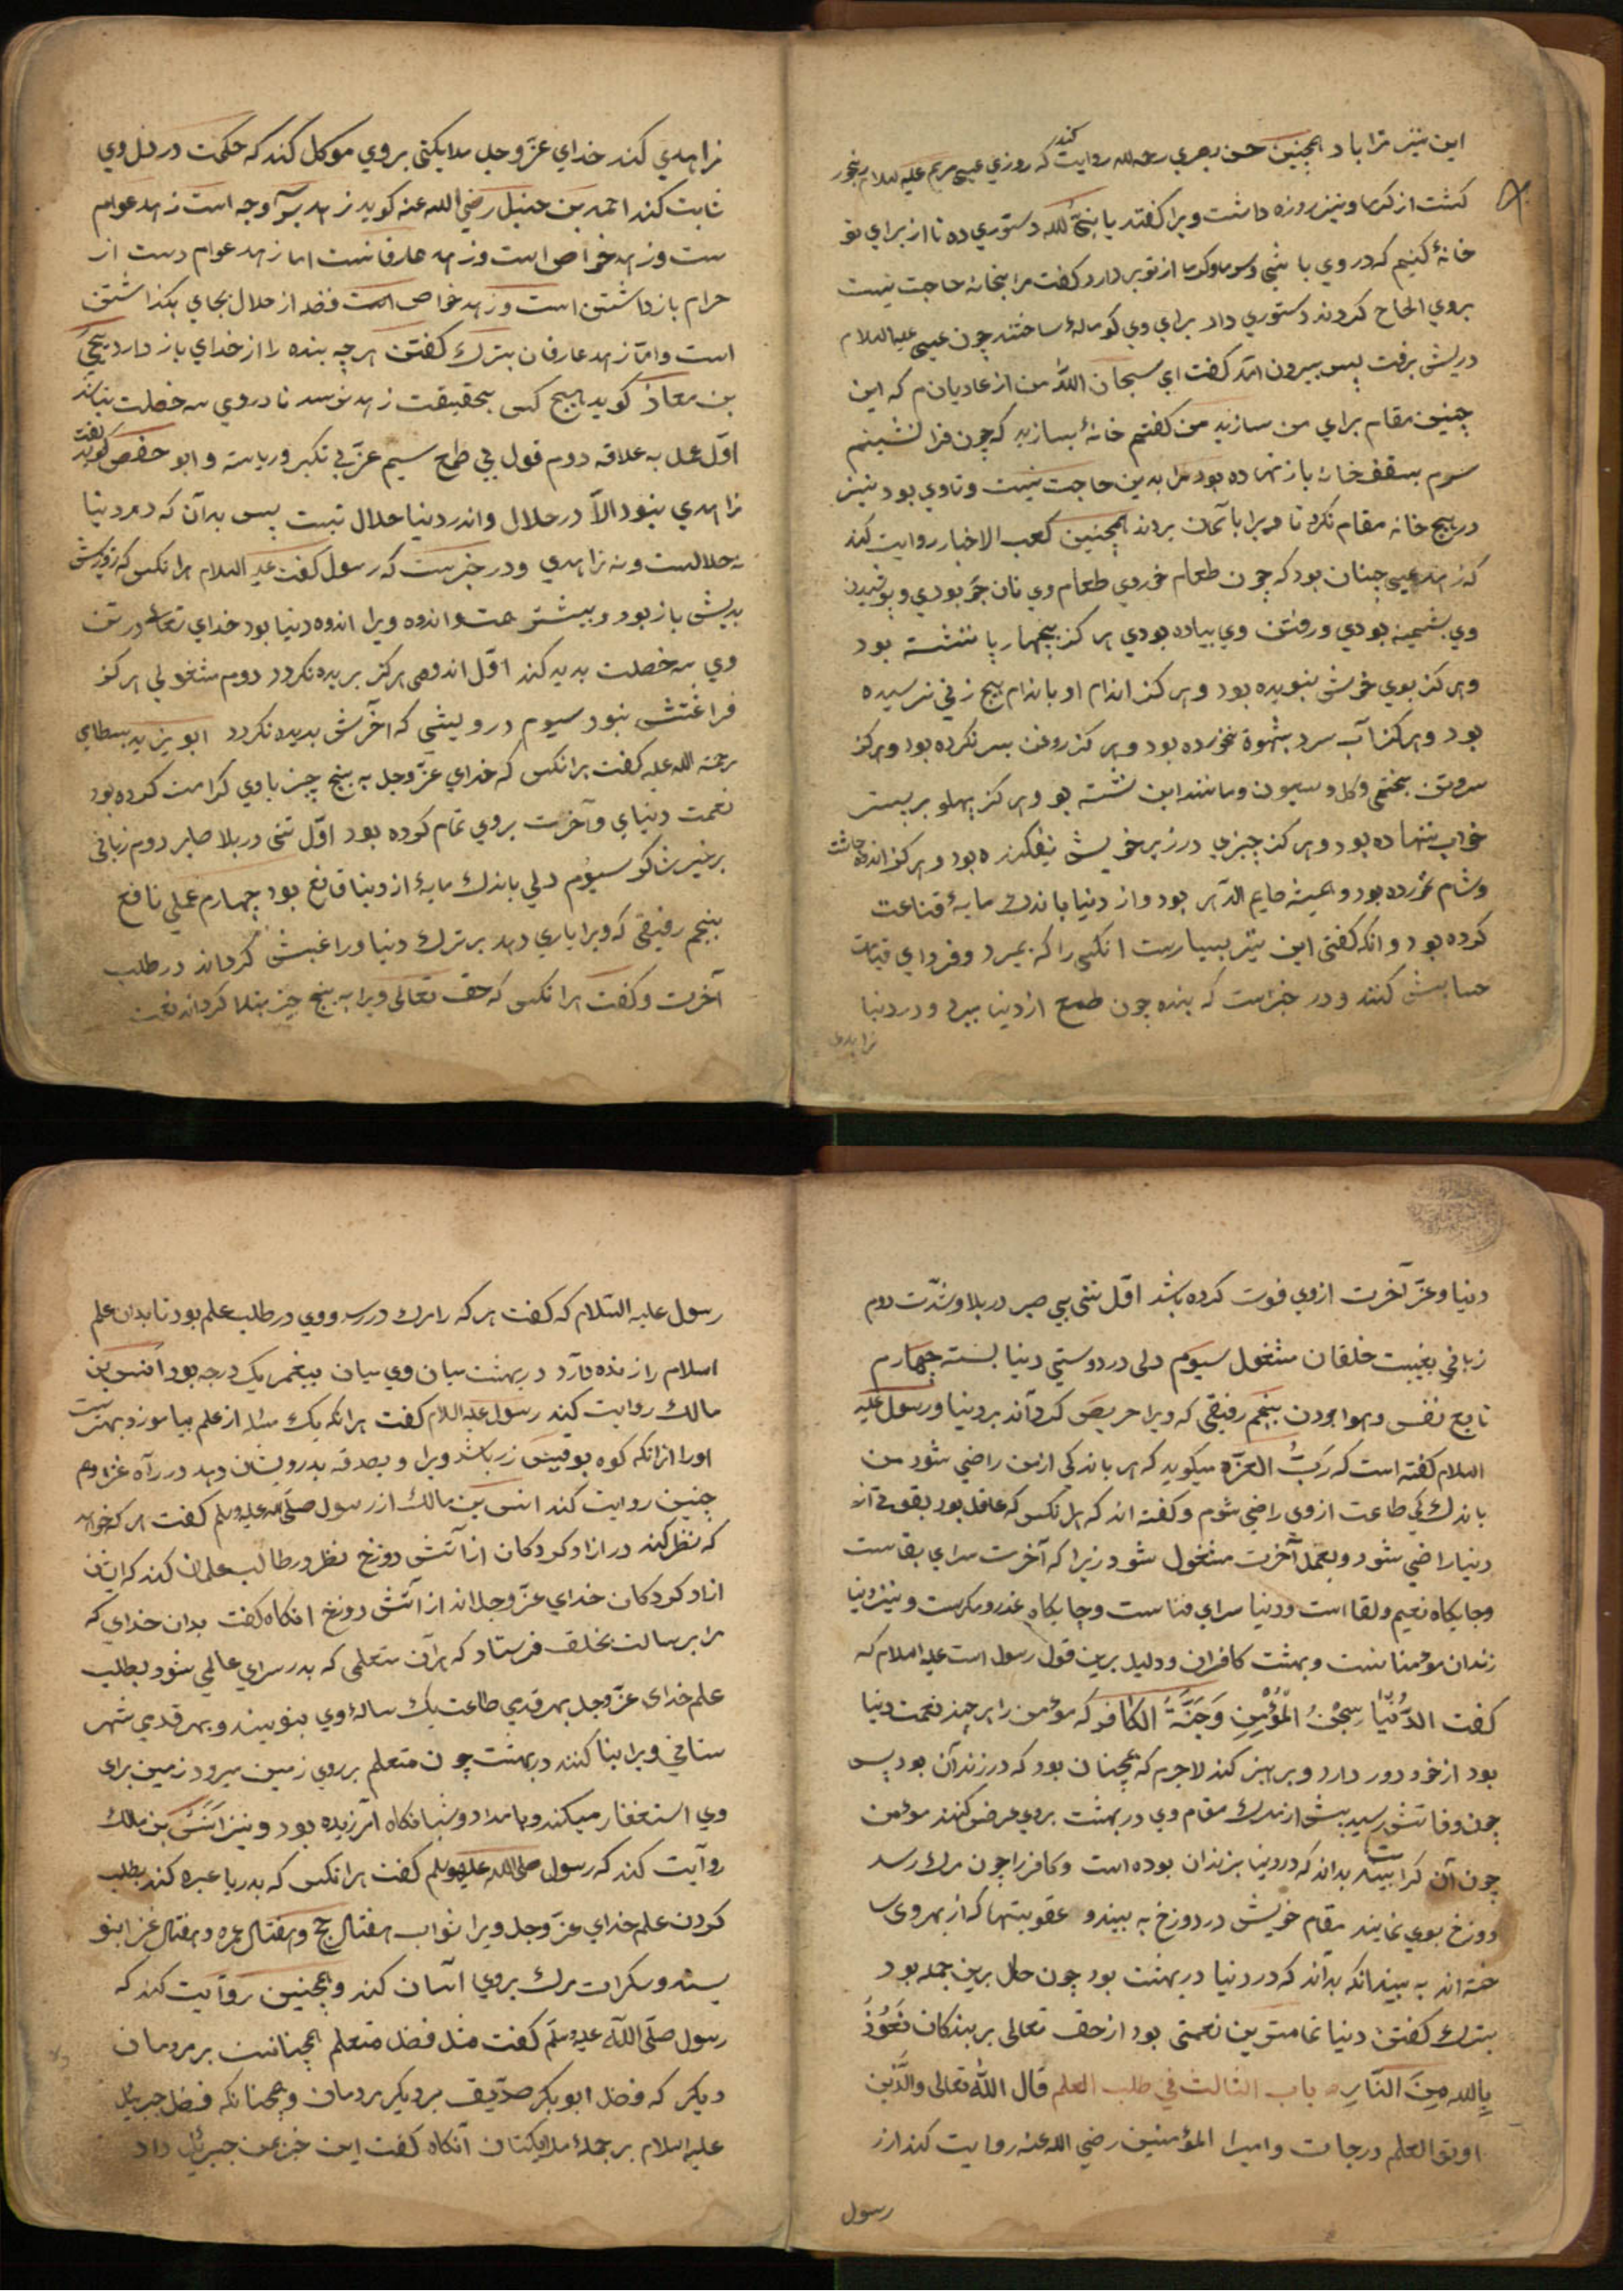 این نیز ترا باد همچنین حسن بصری رحمه الله روایت کند که روزی عیسی مریم علیه السلام رنجور
کشت از کرما و نیز روزه داشت ویرا کفتند یا نبی الله دستوری ده تا از برای تو
خانهٔ کنیم که در وی باشی و سرما و کرما از تو بر دارد کفت مرا بخانه حاجت نیست
بروی الحاح کردند دستوری داد برای وی کومالهٔ ساختند چون عیسی علیه السلام
دریش برفت پس بیرون آمد کفت ای سبحان الله من از عادیان‌م که این
چنین مقام برای من سازید من کفتم خانهٔ بسازید که چون فرا نشینم
سرم بسقف خانه باز نهاده بود مرا بدین حاجت نیست و تا وی بود نیز
در هیچ خانه مقام نکرد تا ویرا بآسمان بردند همچنین کعب الاخبار روایت کند
که زهد عیسی چنان بود که چون طعام خوردی طعام وی نان جو بودی و پوشیدن
وی پشمینه بودی و رفتن وی پیاده بودی هرکز بچهار پا ننشسته بود
و هرکز بوی خوش نبویده بود و هرکز اندام او باندام هیچ زنی نرسیده
بود و هرکز آب سرد بشهوة نخورده بود و هرکز روغن بسر نکرده بود و هرکز
سر و تن بخطمی و کل و سیمون و مانند این نشسته بود و هرکز پهلو بر بستر
خواب ننهاده بود و هرکز چیزی در زیر خویش نیفکنده بود و هرکز اندوه چاشت
و شام نخورده بود و همیشه صایم الدهر بود و از دنیا باندک مایهٔ قناعت
کرده بود و انکه کفتی این نیز بسیارست انکس را که بمیرد و فردای قیامت
حسابش کنند و در خبر است که بنده چون طمع از دنیا ببرد و در دنیا
زاهدی
زاهدی کند خدای عز و جل ملایکتی بروی موکل کند که حکمت در دل وی
ثابت کند احمد بن حنبل رضی الله عنه کوید زهد بسه وجه است زهد عوام
ست و زهد خواص است و زهد عارفانست اما زهد عوام دست از
حرام باز داشتن است و زهد خواص است فضل از حلال بجای بکذاشتن
است و اما زهد عارفان بترک کفتن هر چه بنده را از خدای باز دارد یحیی
بن معاذ کوید هیچ کس بحقیقت زهد نرسد تا در وی سه خصلت نباشد
اول عمل به علاقه دوم قول بی طمع سیم عز بی تکبر و ریاسه و ابو حفص کوید
زاهدی نبود الا در حلال و اندر دنیا حلال نیست پس بدان که در دنیا
نه حلالست و نه زاهدی و در خبرست که رسول کفت علیه السلام هرانکس که روزیش
بدیش باز بود و بیشتر همت و اندوه ویرا اندوه دنیا بود خدای تعالی در تن
وی سه خصلت بدید کند اول اندهی هرکز بریده نکردد دوم مشغولی هرکز
فراغتش نبود سیوم درویشی که آخرش بدیده نکردد ابو یزید بسطامی
رحمة الله علیه کفت هرانکس که خدای عز و جل به پنج چیز با وی کرامت کرده بود
نعمت دنیای و آخرت بروی تمام کرده بود اول تنی در بلا صابر دوم زبانی
بر خیر شاکر سیوم دلی باندک مایهٔ از دنیا قانع بود چهارم عملی نافع
پنجم رفیقی که ویرا یاری دهد بر ترک دنیا و راغبش کرداند در طلب
آخرت و کفت هرانکس که حق تعالی ویرا به پنج چیز مبتلا کرداند نعمت
دنیا و عز آخرت از وی فوت کرده باشد اول تنی بی صبر در بلا و شدت دوم
زبانی بغیبت خلقان مشغول سیوم دلی در دوستی دنیا بسته چهارم
تابع نفس و هوا بودن پنجم رفیقی که ویرا حریص کرداند بر دنیا و رسول علیه
السلام کفته است که رب العزة میکوید که هر باندکی از من راضی شود من
باندک کی طاعت از وی راضی شوم و کفته اند که هرانکس که عاقل بود بقوتی از
دنیا راضی شود و بعمل آخرت مشغول شود زیرا که آخرت سرای بقاست
و جایکاه نعیم و لقا است و دنیا سرای فناست و جایکاه غدر و مکرست و نیز دنیا
زندان مؤمنانست و بهشت کافران و دلیل برین قول رسول است علیه السلام که
کفت الدُّنْیَا سِجْنُ الْمُؤْمِنِ وَجَنَّةُ الکافر که مؤمن را هر چند نعمت دنیا
بود از خود دور دارد و پرهیز کند لاجرم که همچنان بود که در زندان بود پس
چون وفاتش رسید پیش از مرک مقام وی در بهشت بروی عرض کنند مؤمن
چون آن کرامت بیند بداند که در دنیا بزندان بوده است و کافر را چون مرک رسد
دوزخ بوی نمایند مقام خویش در دوزخ به بیند و عقوبتها که از بهر وی سا
خته اند به بیند انکه بداند که در دنیا در بهشت بود چون حال برین جمله بود
بترک کفتن دنیا تمامترین نعمتی بود از حق تعالی بر بندکان نَعُوذُ
بِاللهِ مِنَ النَّارِ باب الثالث فی طلب العلم قال الله تعالی والَّذین
اوتوا العلم درجات و امیر المؤمنین رضی الله عنه روایت کند از
رسول
رسول علیه السلام که کفت هر که را مرک در رسد و وی در طلب علم بود تا بدان علم
اسلام را زنده دارد در بهشت میان وی میان پیغمبر یک درجه بود انس بن
مالک روایت کند رسول علیه السلام کفت هرانکه یک مسٔله از علم بیاموزد بهترست
اورا از انکه کوه بو قبیس زر باشد ویرا و بصدقه بدرویشان دهد در راه خدا و هم
چنین روایت کند انس بن مالک از رسول صلی الله علیه وسلم کفت هر که خواهد
که نظر کند در ازاد کردکان از آتش دوزخ نظر در طالب علمان کند که ایشان
ازاد کردکان خدای عز و جل اند از آتش دوزخ انکاه کفت بدان خدای که
مرا برسالت بخلق فرستاد که هر آن متعلمی که بدر سرای عالمی شود بطلب
علم خدای عز و جل بهر قدمی طاعت یک ساله وی بنویسند و بهر قدمی شهر
ستانی ویرا بنا کنند در بهشت چون متعلم بر روی زمین میرود زمین برای
وی استغفار میکند و بامداد و شبانکاه آمرزیده بود و نیز انس بن مالک
روایت کند که رسول صلی الله علیه وسلم کفت هرانکس که بدریا عبره کند بطلب
کردن علم خدای عز و جل ویرا ثواب هفتاد حج و هفتاد عمره و هفتاد غزا بنو
یسند و سکرات مرک بروی آسان کند و همچنین روایت کند که
رسول صلی الله علیه وسلم کفت مثل فضل متعلم همچنانست بر مردمان
دیکر که فضل ابو بکر صدیق بر دیکر مردمان و همچنانکه فضل جبریل
علیه السلام بر جملهٔ ملایکتان آنکاه کفت این خبر من جبریل داد